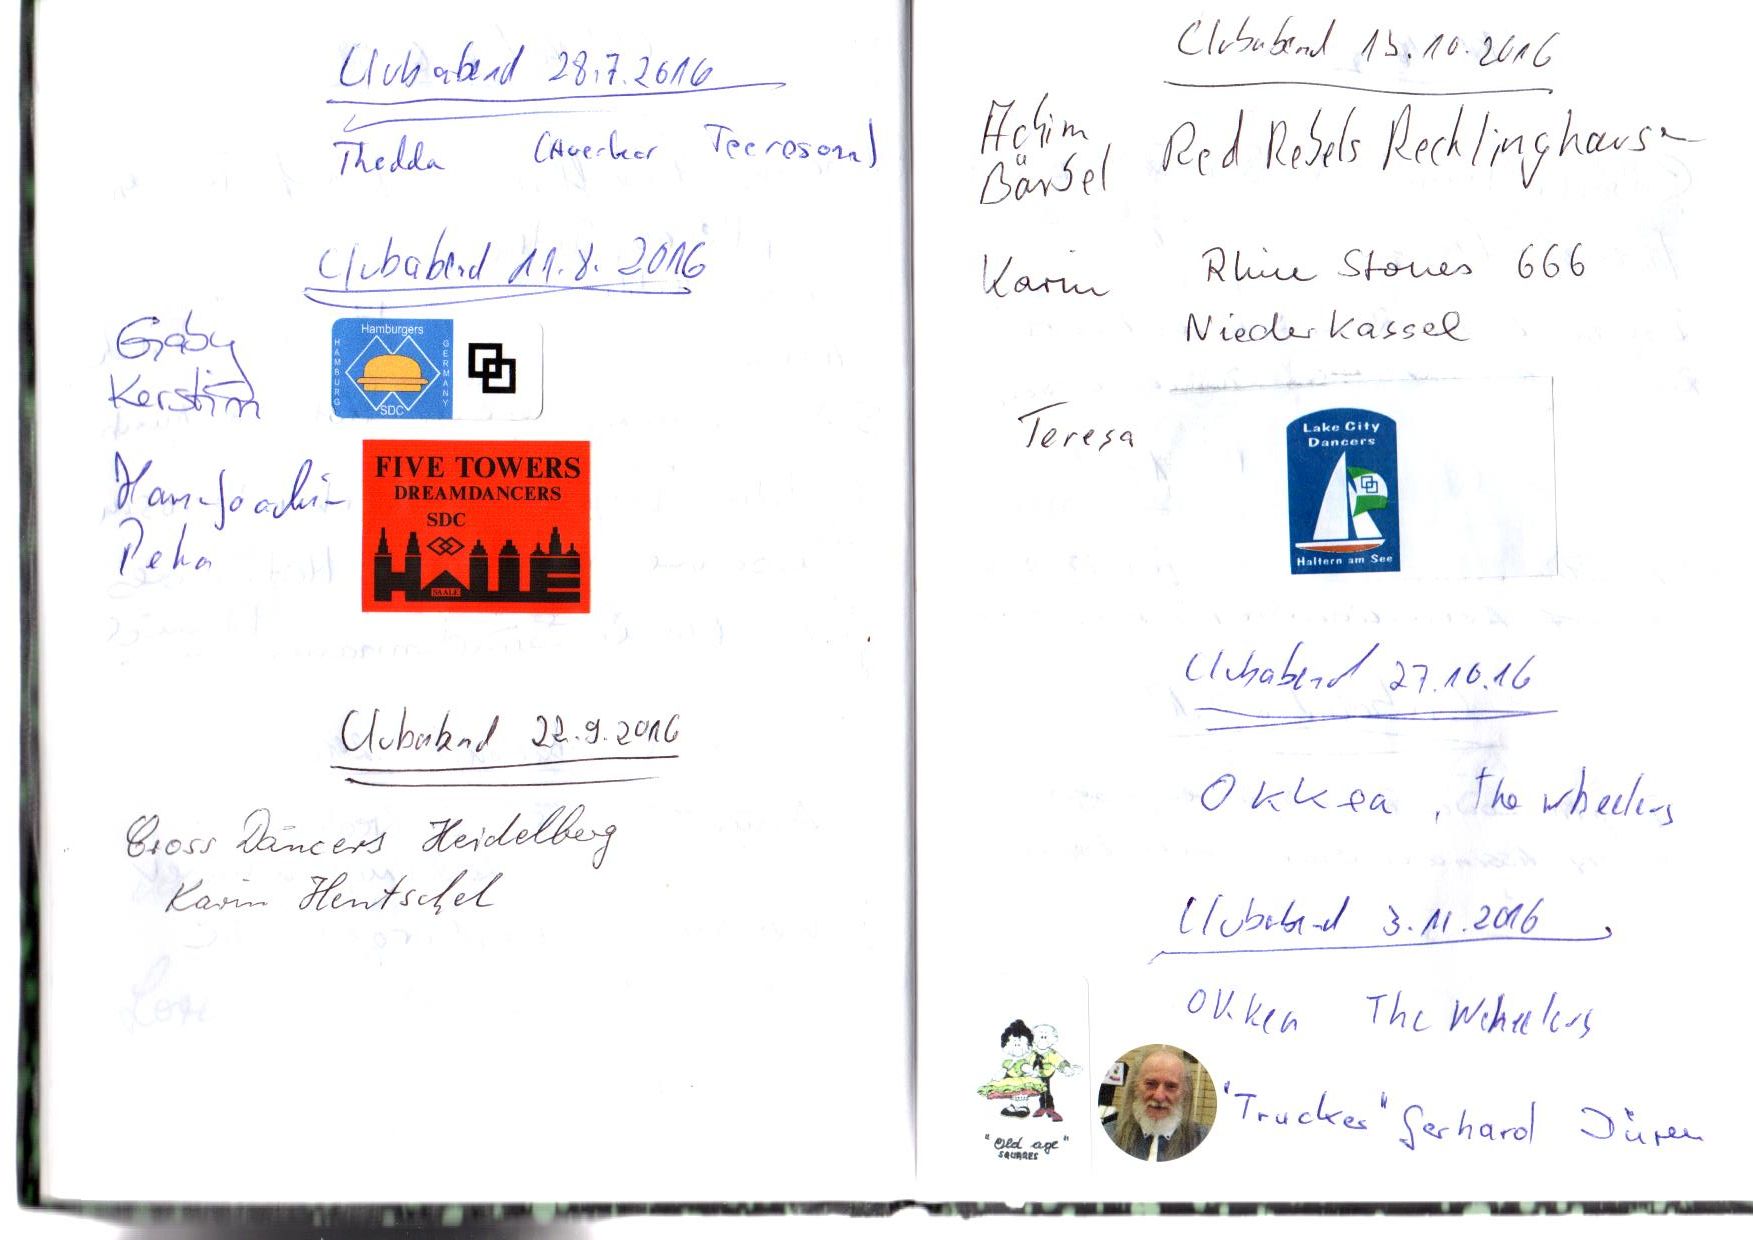 Clubabend 28.7.2016
Thedda
Clubabend 11.8.2016
Gaby
Kerstin
Hamburgers
HAMBURG
GERMANY
SDC
Hans-Joachim
FIVE TOWERS
DREAMDANCERS
SDC
HALLE
SAALE
Clubabend 22.9.2016
Cross Dancers Heidelberg
Karin Hentschel
Clubabend 13.10.2016
Achim
Bärbel Red Rebels Recklinghausen
Karin Rhine Stones 666
Niederkassel
Teresa
Lake City
Dancers
Haltern am See
Clubabend 27.10.16
Okkea, The wheelers
Clubabend 3.11.2016
Okkea The Wheelers
"Trucker" Gerhard Düren
"Old age"
SQUARES